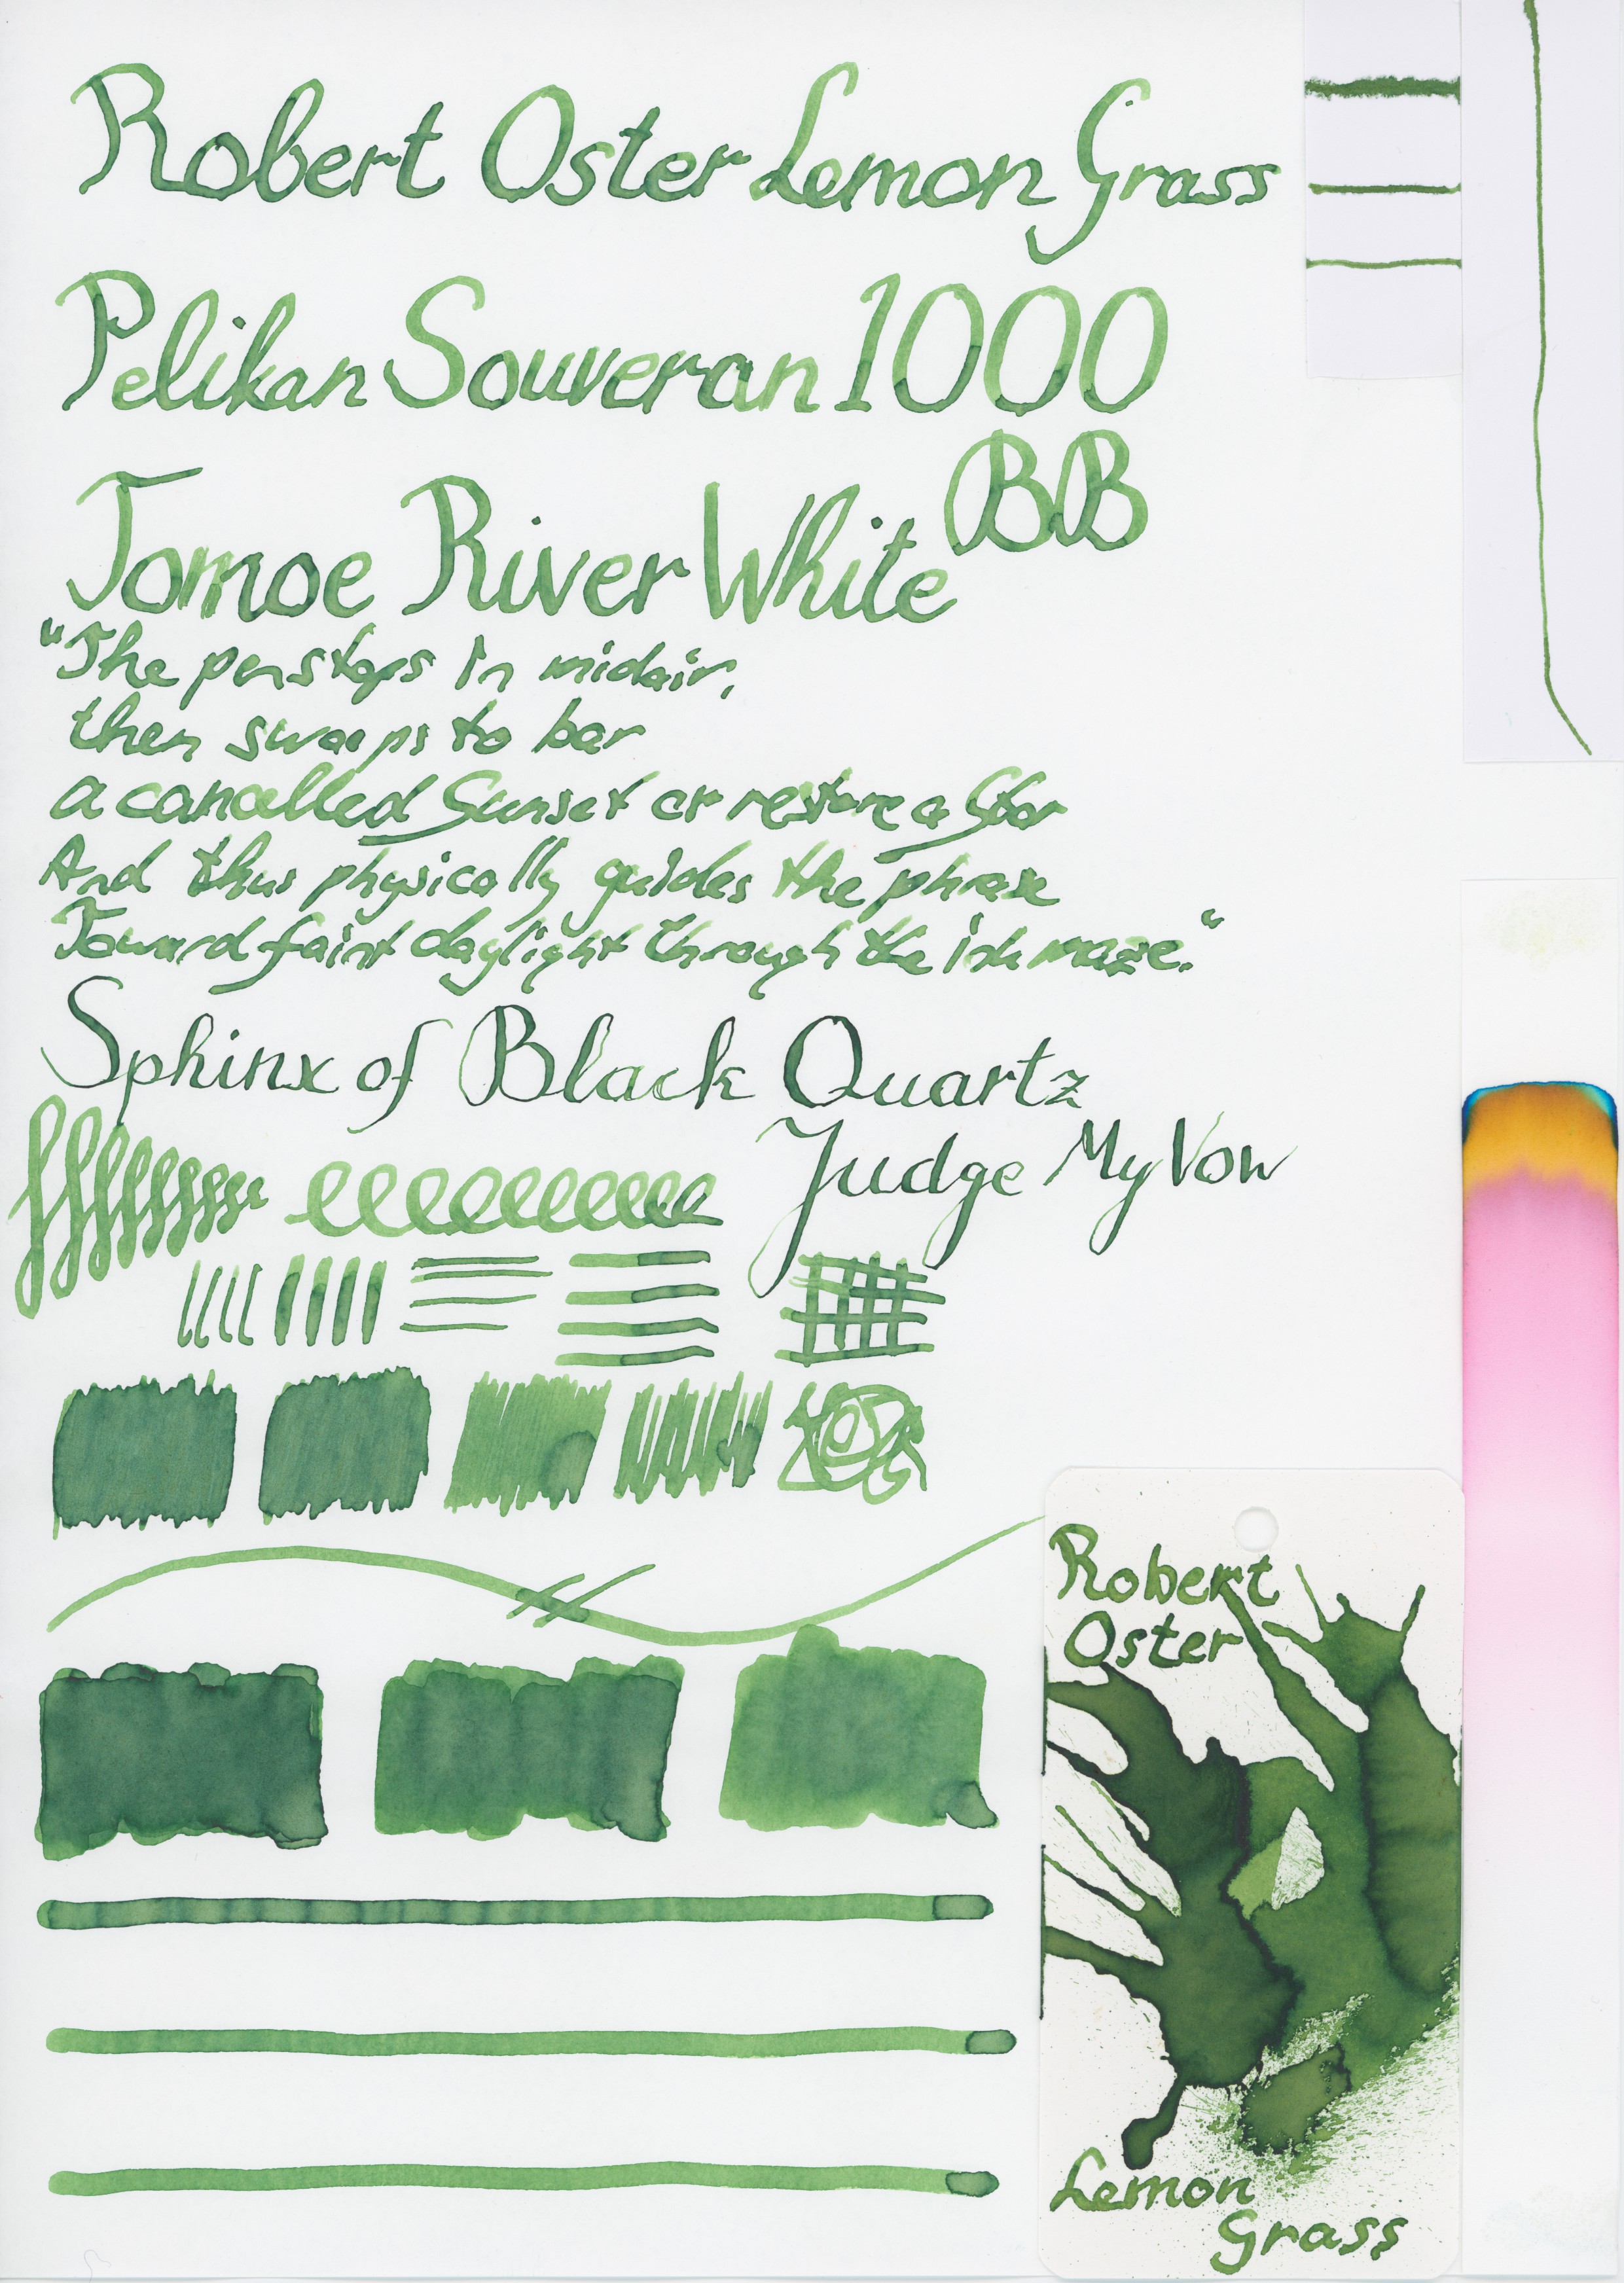 Robert Oster Lemon Grass
Pelikan Souveran 1000
BB
Tomoe River White
"The pen stops in midair,
then swoops to bar
a cancelled Sunset or restore a Star
And thus physically guides the phrase
Toward faint daylight through the ink maze."
Sphinx of Black Quartz
Judge My Vow
Robert
Oster
Lemon
Grass